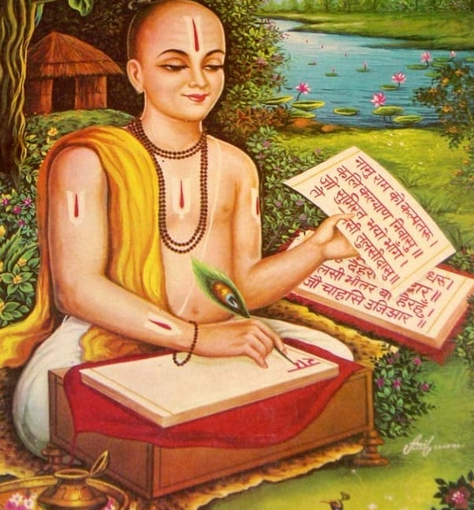 नामु राम को कलपतरू।
कलि कल्याण निवासु॥
जो सुमिरत भयो भाँग
तुलसीदासु॥
धरू।
लसी भीतर बाहेरहुँ।
जो चाहसि उजिआर॥
राम